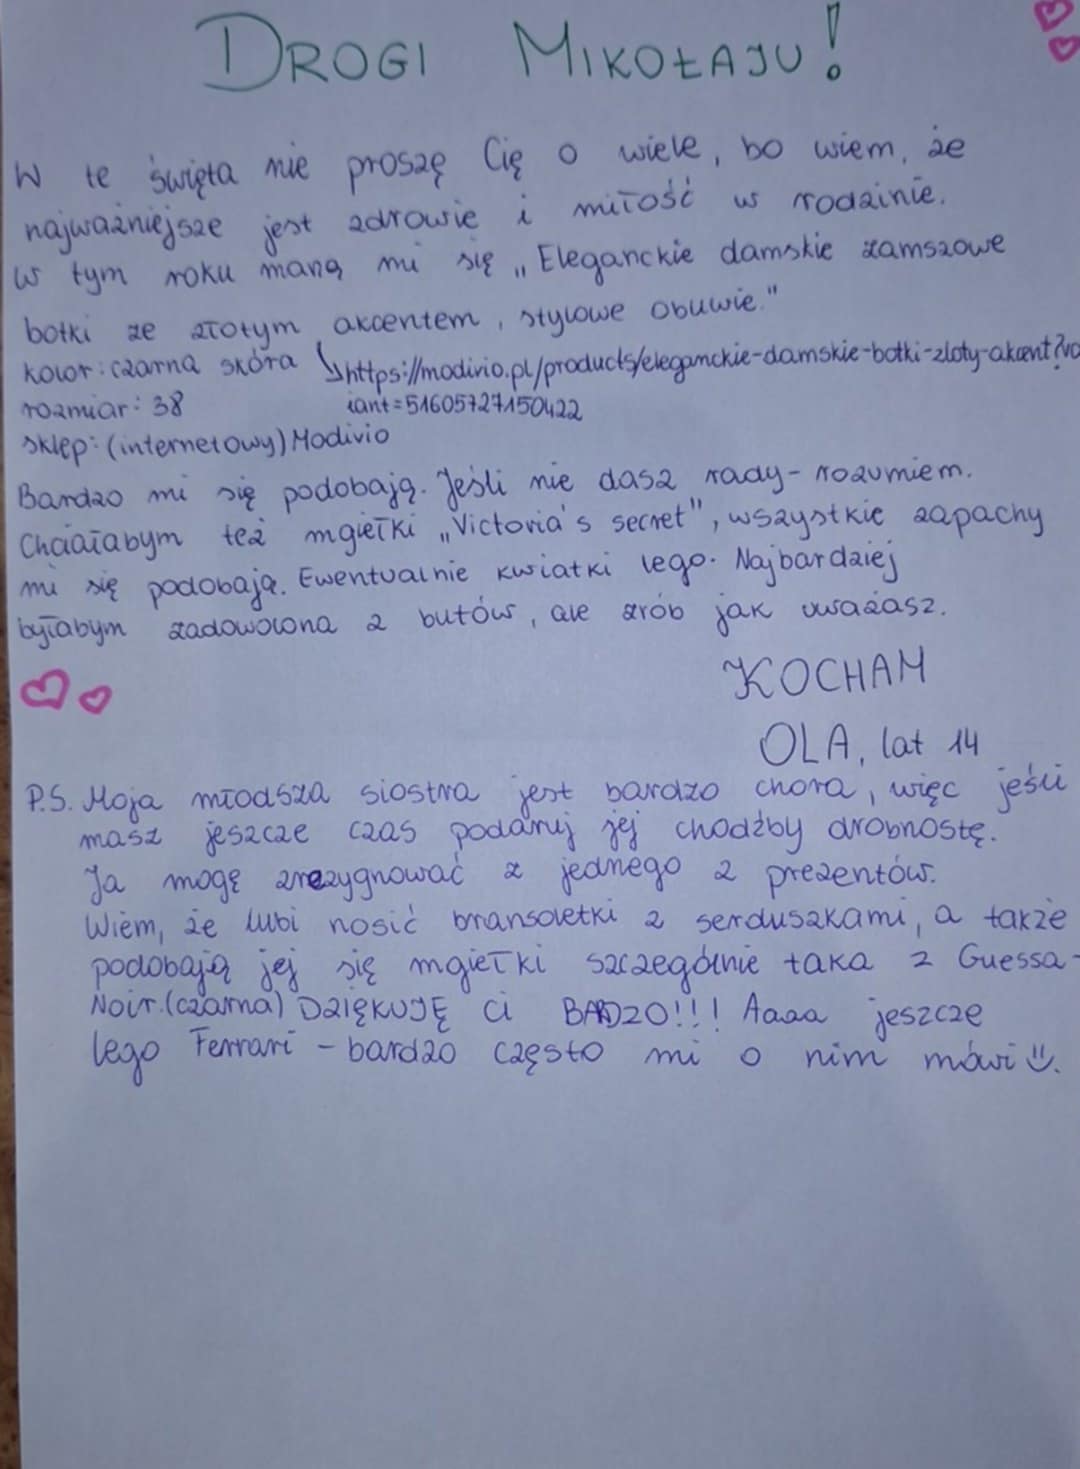 DROGI MIKOŁAJU!
W te święta nie proszę Cię o wiele, bo wiem, że
najważniejsze jest zdrowie i miłość w rodzinie.
W tym roku marzą mi się „Eleganckie damskie zamszowe
botki ze złotym akcentem, stylowe obuwie."
kolor: czarna skóra ↳https://modivio.pl/products/eleganckie-damskie-botki-zloty-akcent?va
rozmiar: 38 iant=51605727150422
sklep: (internetowy) Modivio
Bardzo mi się podobają. Jeśli nie dasz rady - rozumiem.
Chciałabym też mgiełki „Victoria's secret", wszystkie zapachy
mi się podobają. Ewentualnie kwiatki lego. Najbardziej
byłabym zadowolona z butów, ale zrób jak uważasz.
KOCHAM
OLA, lat 14
P.S. Moja młodsza siostra jest bardzo chora, więc jeśli
masz jeszcze czas podaruj jej chodźby drobnostę.
Ja mogę zrezygnować z jednego z prezentów.
Wiem, że lubi nosić bransoletki z serduszkami, a także
podobają jej się mgiełki szczególnie taka z Guessa-
Noir.(czarna) DZIĘKUJĘ Ci BARDZO!!! Aaaa jeszcze
lego Ferrari - bardzo często mi o nim mówi ü.